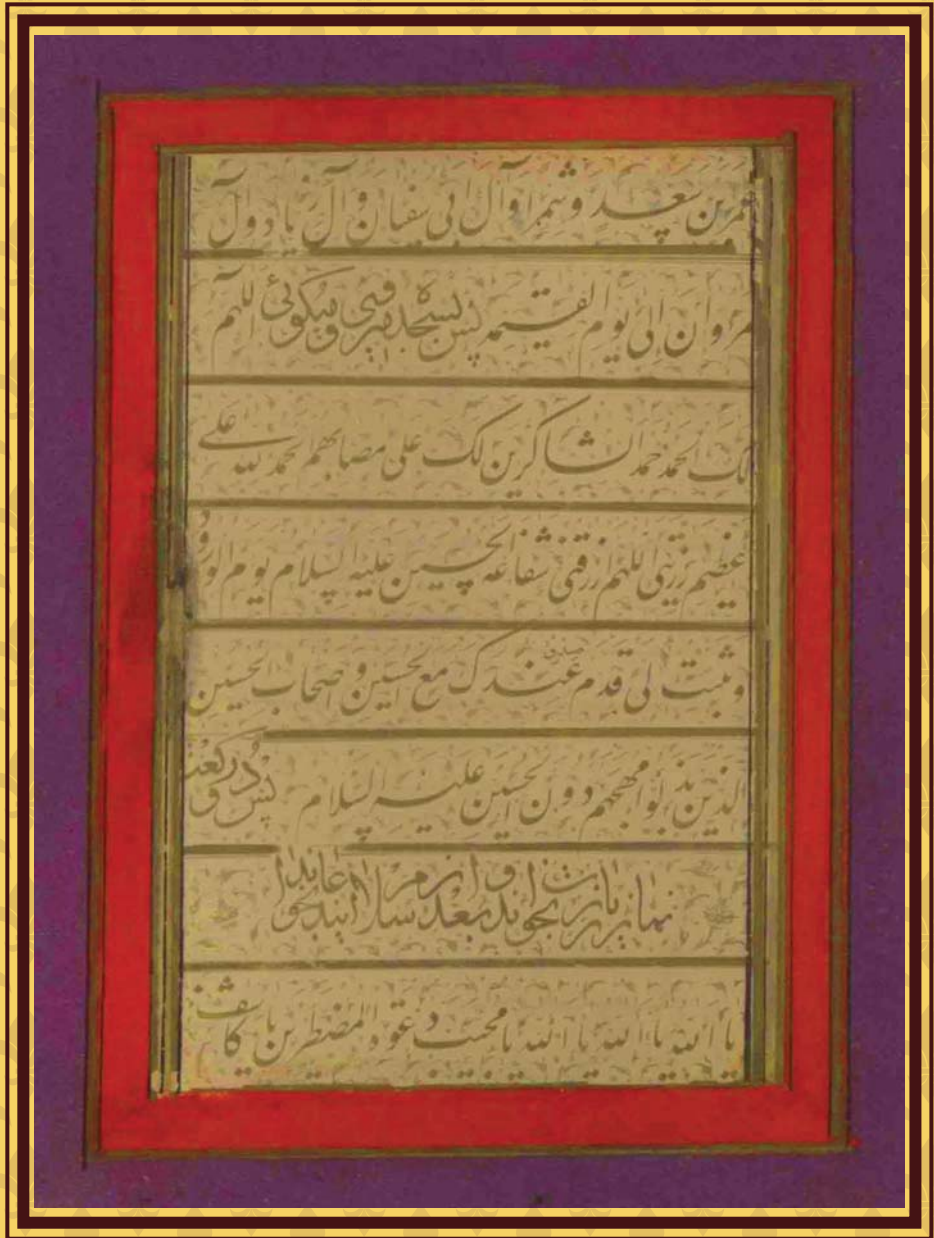 عمر بن سعد و شمرا و آل ابی سفیان و آل زیاد و آل
مروان الی یوم القیمة پس بسجده میروی و میگوئی اللهم
لک الحمد حمد الشاکرین لک علی مصابهم الحمد لله علی
عظیم رزیتی اللهم ارزقنی شفاعة الحسین علیه السلام یوم الورود
و ثبت لی قدم صدق عندک مع الحسین و اصحاب الحسین
الذین بذلوا مهجهم دون الحسین علیه السلام پس دو رکعت
نماز زیارت بجوید و بعد از سلام این دعا بخواند
یا الله یا الله یا الله یا مجیب دعوة المضطرین یا کاشف